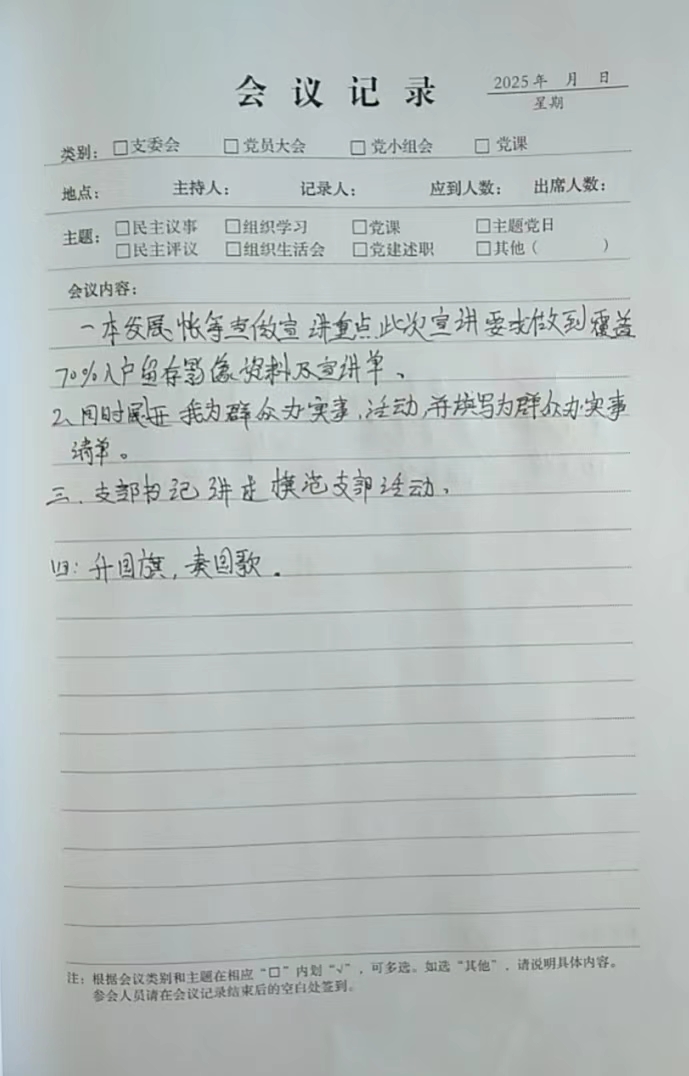 会议记录
2025年 月 日
星期
类别：□支委会 □党员大会 □党小组会 □党课
地点： 主持人： 记录人： 应到人数： 出席人数：
主题：□民主议事 □组织学习 □党课 □主题党日
□民主评议 □组织生活会 □党建述职 □其他（ ）
会议内容：
一本发展帐等 做宣讲重点.此次宣讲要求做到覆盖
70%入户留存影像资料及宣讲单、
2、同时展开 我为群众办实事,活动,并填写为群众办实事
清单。
三、支部书记讲述模范支部活动、
四：升国旗，奏国歌。
注：根据会议类别和主题在相应“□”内划“√”，可多选。如选“其他”，请说明具体内容。
参会人员请在会议记录结束后的空白处签到。